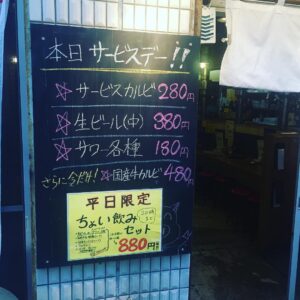 本日 サービスデー!!
☆サービスカルビ 280円
☆生ビール(中) 380円
☆サワー各種 180円
さらに今だけ! ☆国産牛カルビ 480円
平日限定
ちょい飲み
セット
880円